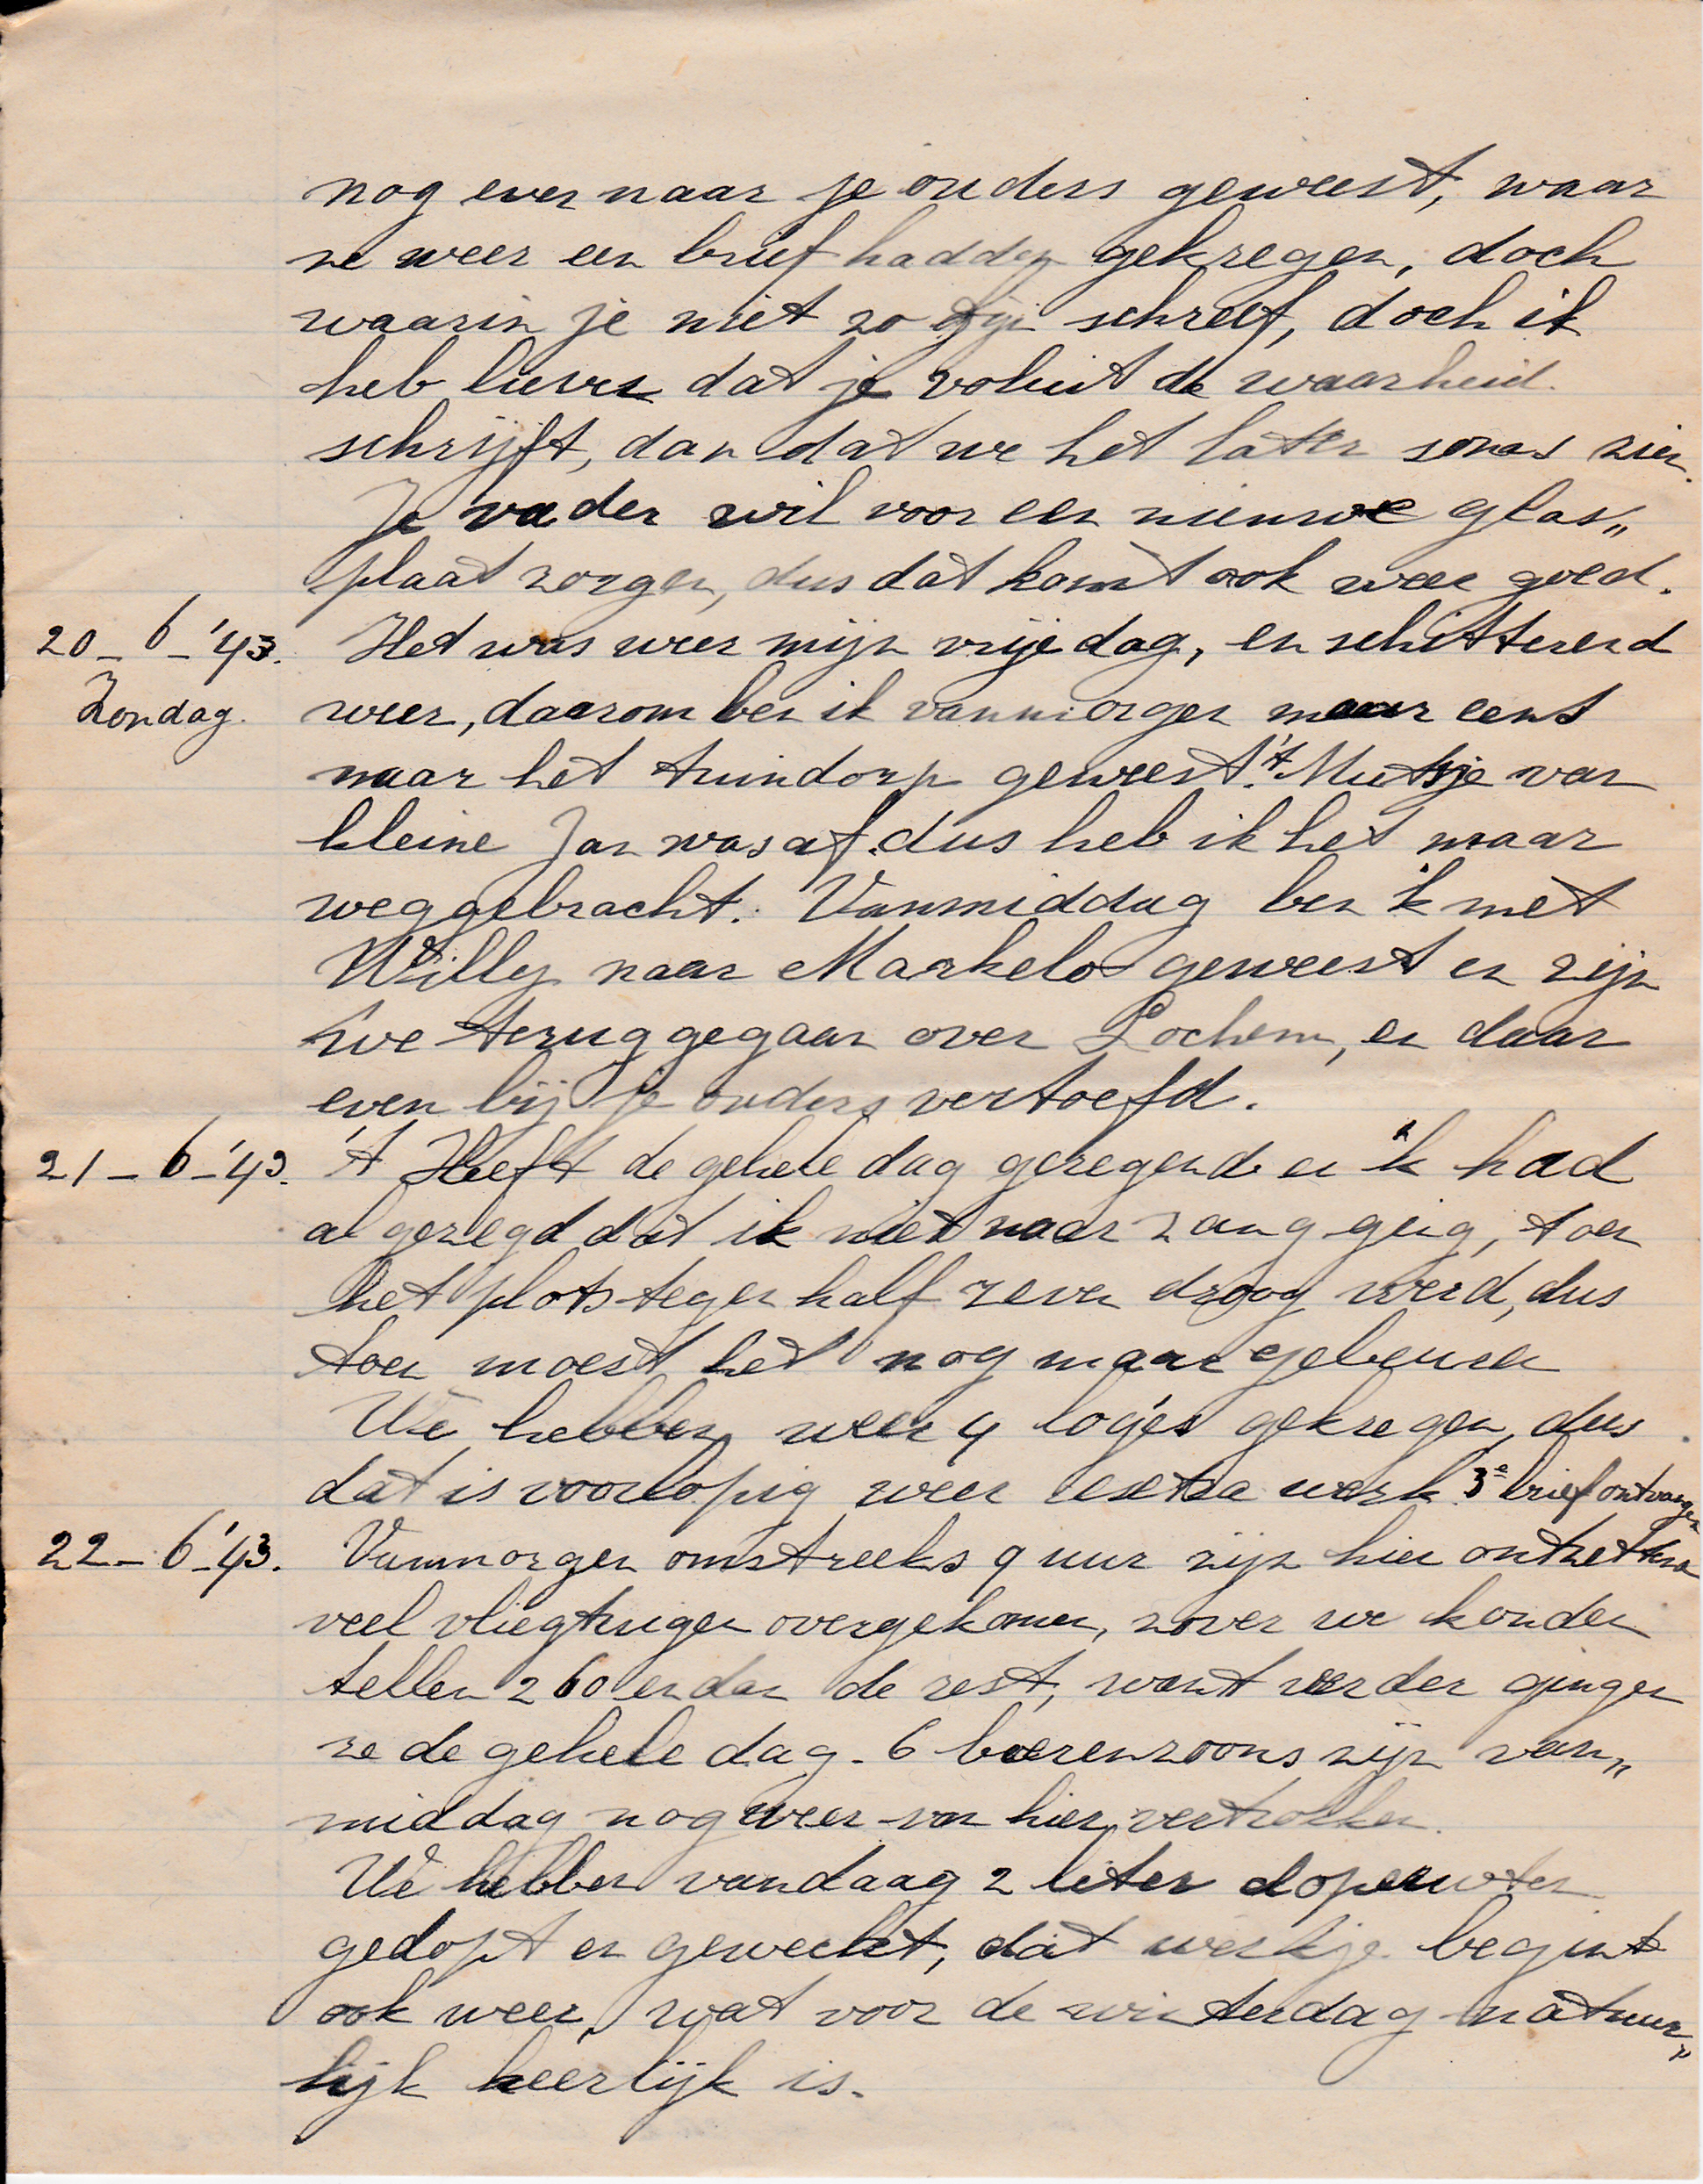 nog even naar je ouders geweest, waar
ze weer een brief hadden gekregen, doch
waarin je niet zo fijn schreef, doch ik
heb liever dat je voluit de waarheid
schrijft, dan dat we het later soms zien.
Je vader wil voor een nieuwe glas„
plaat zorgen, dus dat komt ook weer goed.
20-6-'43. Het was weer mijn vrije dag, en schitterend
Zondag. weer, daarom ben ik vanmorgen maar eens
naar het tuindorp geweest. 't Mutsje van
kleine Jan was af dus heb ik het maar
weggebracht. Vanmiddag ben 'k met
Willy naar Markelo geweest en zijn
we teruggegaan over Lochem, en daar
even bij je ouders vertoefd.
21-6-'43. 't Heeft de gehele dag geregend en 'k had
al gezegd dat ik niet naar zang ging, toen
het plots tegen half zeven droog werd, dus
toen moest het nog maar gebeuren
We hebben weer 4 logés gekregen, dus
dat is voorlopig weer extra werk. 3e brief ontvangen
22-6-'43. Vanmorgen omstreeks 9 uur zijn hier ontzettend
veel vliegtuigen overgekomen, zover we konden
tellen 260 en dan de rest, want verder gingen
ze de gehele dag. 6 boerenzoons zijn van„
middag nog weer van hier vertrokken.
We hebben vandaag 2 liter doperwten
gedopt en geweckt, dat werkje begint
ook weer, wat voor de winterdag natuur„
lijk heerlijk is.